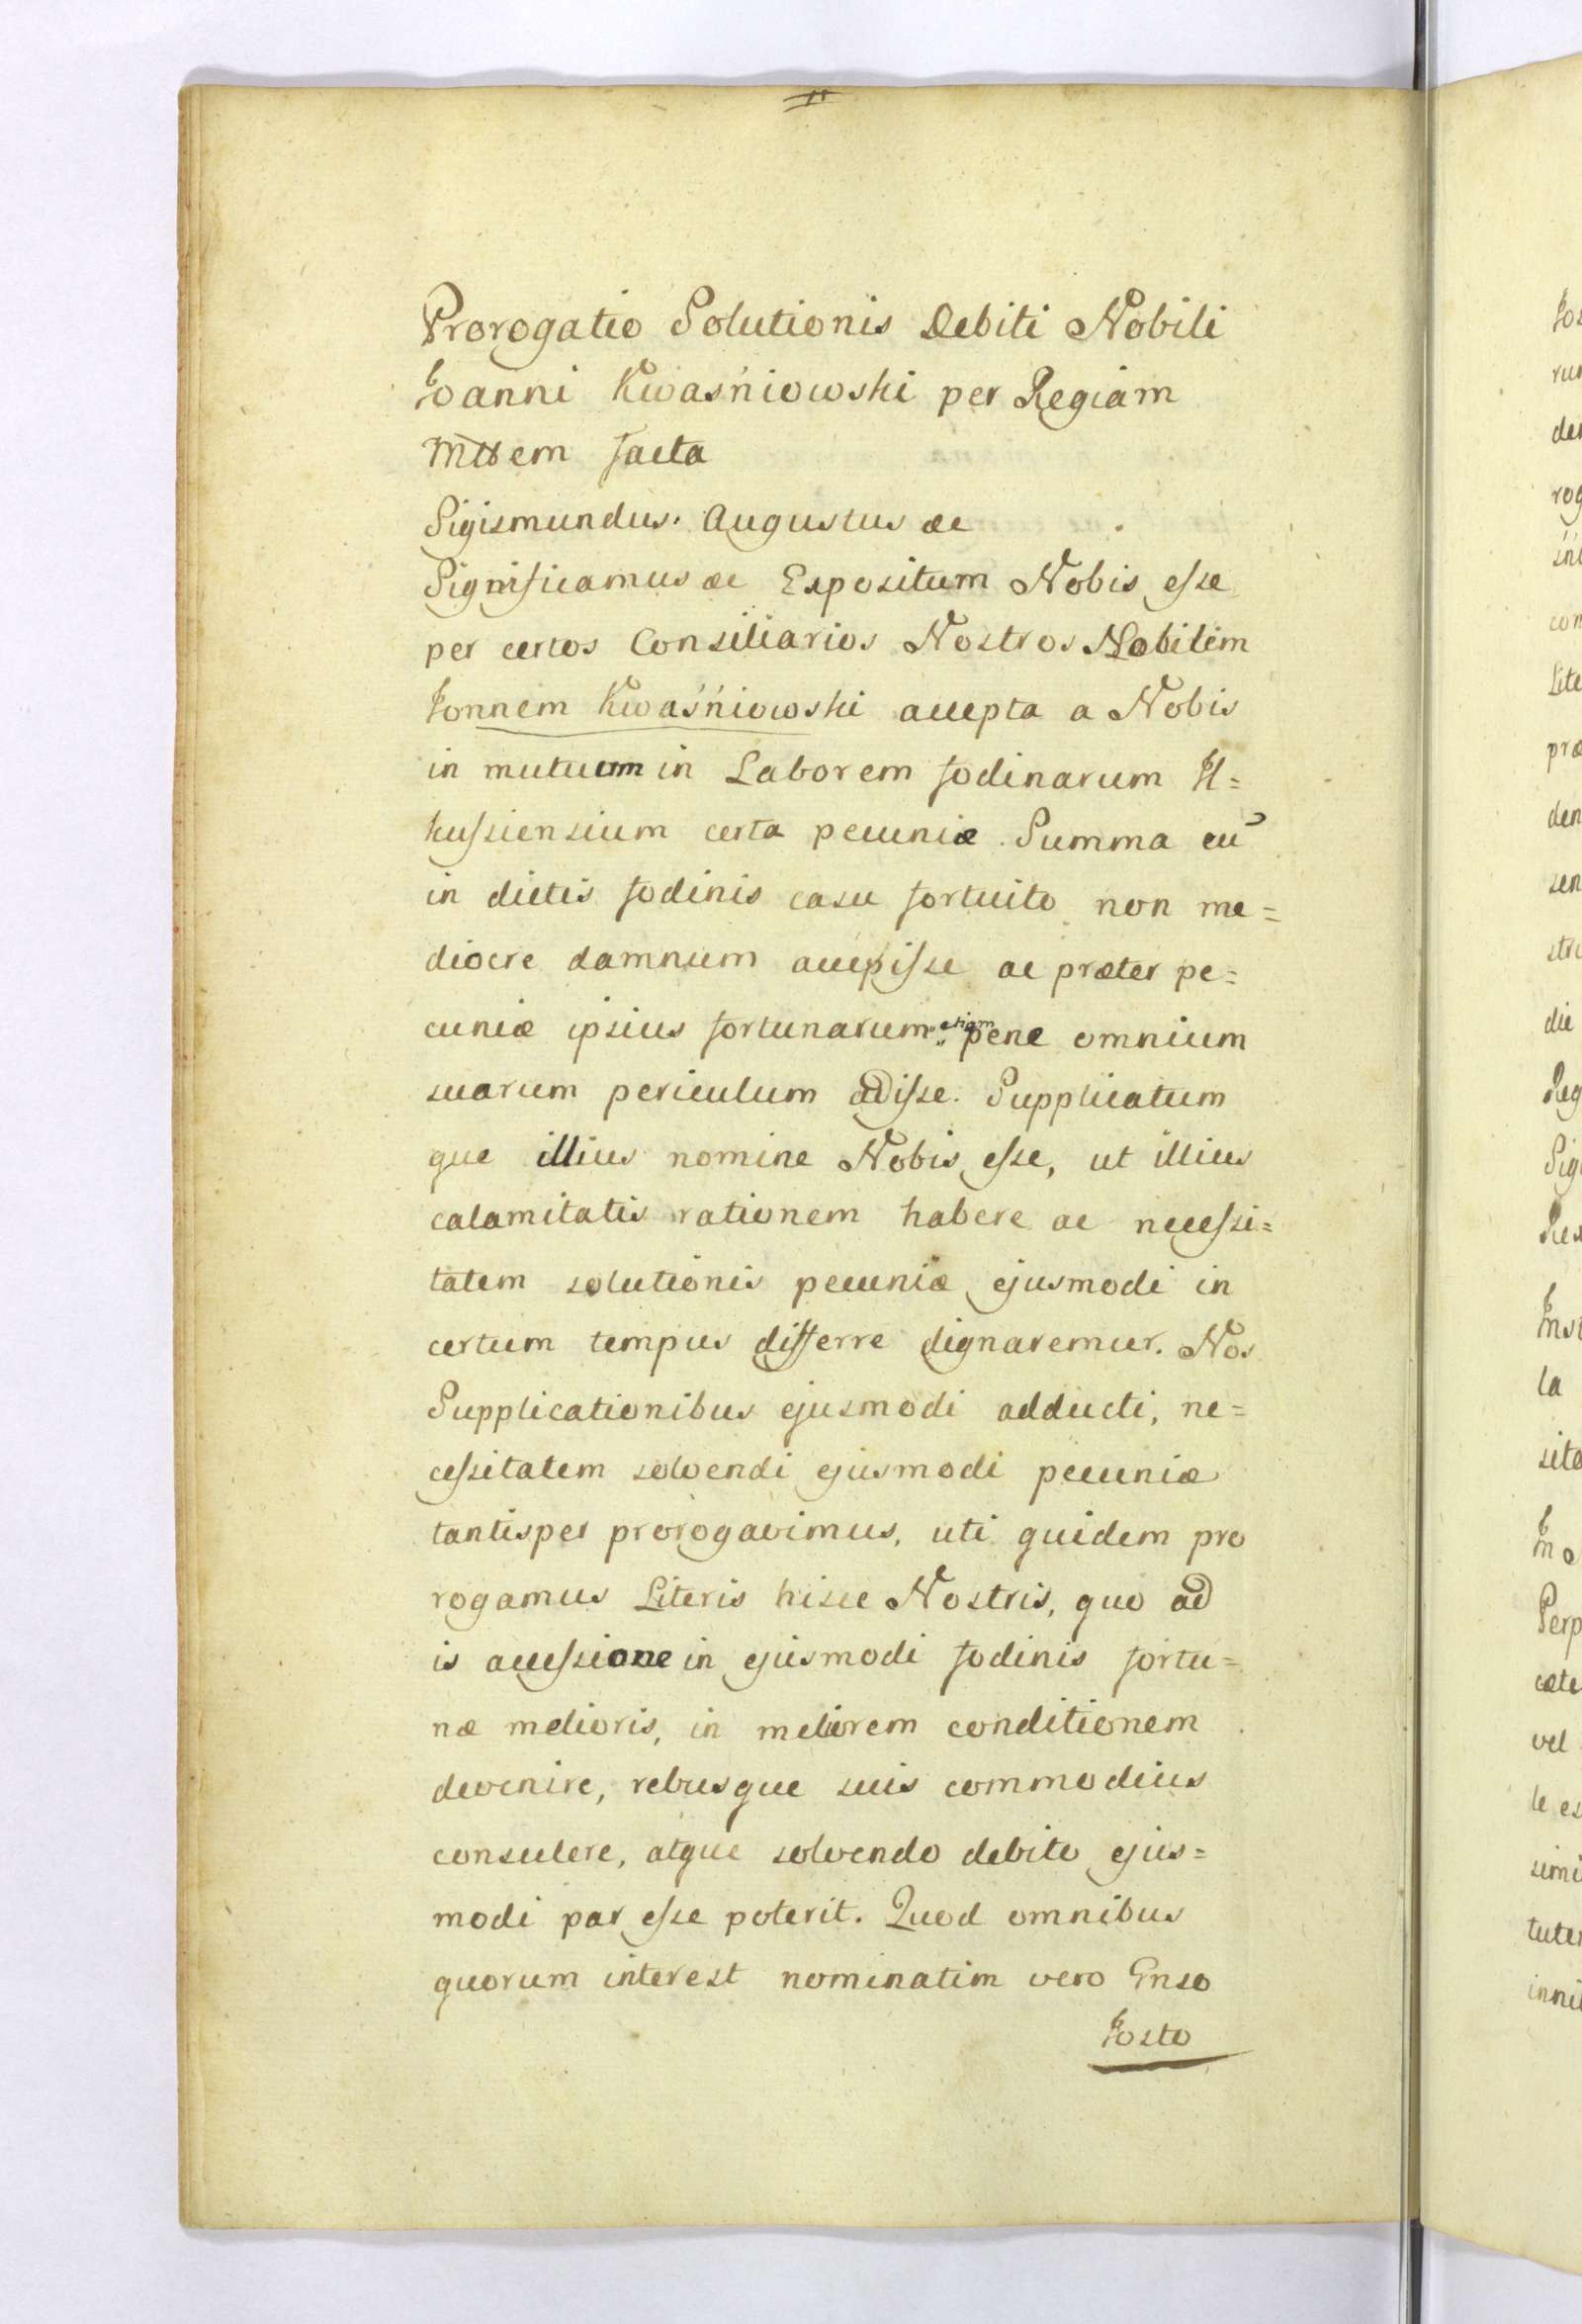 Prorogatio Solutionis Debiti Nobili
Joanni Kwaśniowski per Regiam
Mttem facta
Sigismundus Augustus &c
Significamus &c Expositum Nobis esse
per certos Consiliarios Nostros Nobilem
Jonnem Kwaśniowski accepta a Nobis
in mutuum in Laborem fodinarum Il=
kussiensium certa pecuniæ Summa eū
in dictis fodinis casu fortuito non me=
diocre damnum accepisse ac præter pe=
cuniæ ipsius fortunarum etiam pene omnium
suarum periculum adisse. Supplicatum
que illius nomine Nobis esse, ut illius
calamitatis rationem habere ac necessi=
tatem solutionis pecuniæ ejusmodi in
certum tempus differre dignaremur. Nos
Supplicationibus ejusmodi adducti, ne=
cessitatem solvendi ejusmodi pecuniæ
tantisper prorogavimus, uti quidem pro
rogamus Literis hisce Nostris, quo ad
is accessione in ejusmodi fodinis fortu=
næ melioris, in meliorem conditionem
devenire, rebusque suis commodius
consulere, atque solvendo debito ejus=
modi par esse poterit. Quod omnibus
quorum interest nominatim vero Gnso
Josto